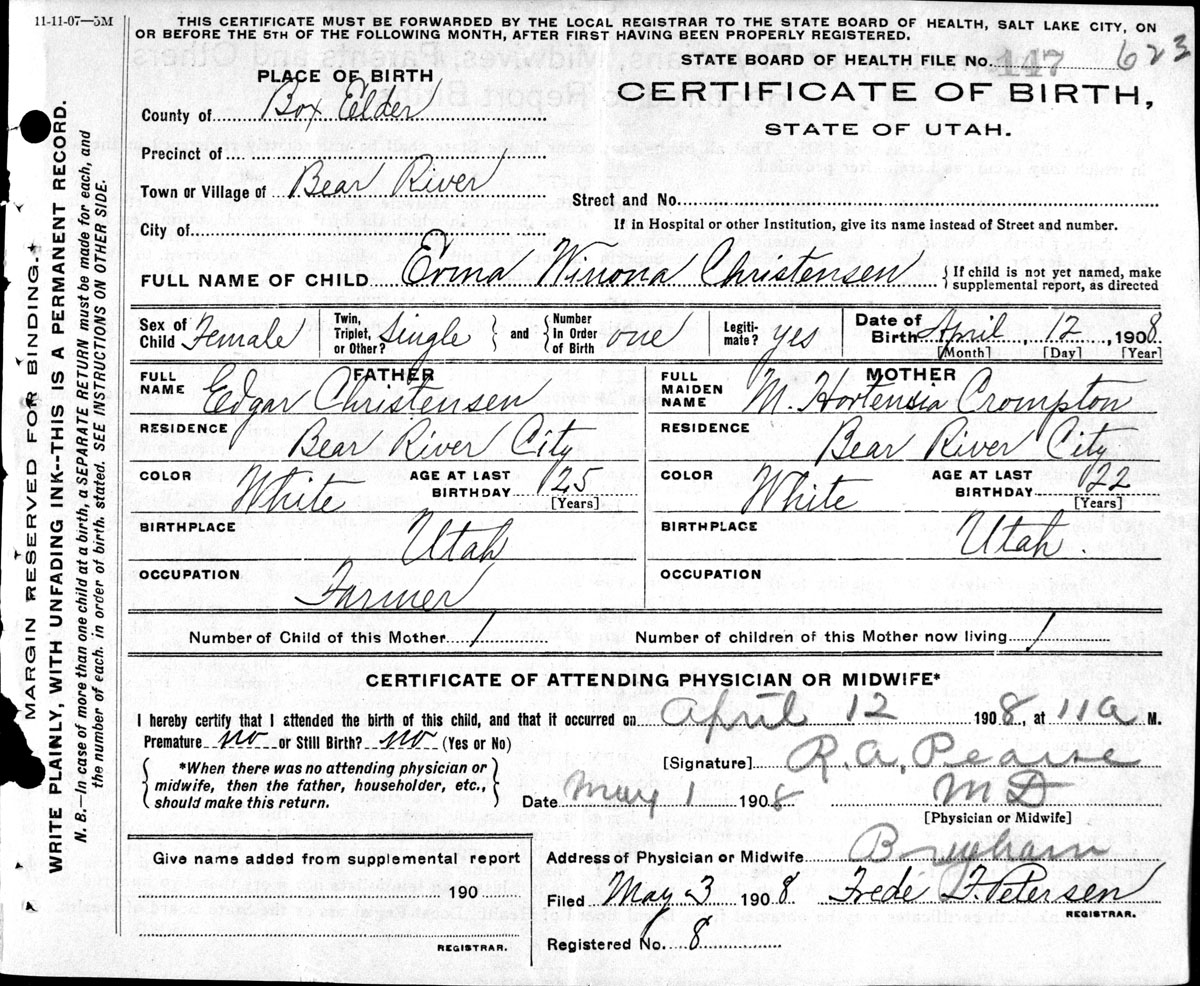 11-11-07—5M
THIS CERTIFICATE MUST BE FORWARDED BY THE LOCAL REGISTRAR TO THE STATE BOARD OF HEALTH, SALT LAKE CITY, ON
OR BEFORE THE 5TH OF THE FOLLOWING MONTH, AFTER FIRST HAVING BEEN PROPERLY REGISTERED.
STATE BOARD OF HEALTH FILE No. 147 623
PLACE OF BIRTH
CERTIFICATE OF BIRTH,
STATE OF UTAH.
County of Box Elder
Precinct of
Town or Village of Bear River
Street and No.
City of
If in Hospital or other Institution, give its name instead of Street and number.
FULL NAME OF CHILD Erma Winona Christensen
{If child is not yet named, make
supplemental report, as directed
Sex of Child Female
Twin, Triplet, or Other? Single
and
Number In Order of Birth one
Legiti-mate? yes
Date of Birth April, 12, 1908
[Month] [Day] [Year]
FATHER
FULL NAME Edgar Christensen
RESIDENCE Bear River City
COLOR White
AGE AT LAST BIRTHDAY 25
[Years]
BIRTHPLACE Utah
OCCUPATION Farmer
MOTHER
FULL MAIDEN NAME M. Hortensia Crompton
RESIDENCE Bear River City
COLOR White
AGE AT LAST BIRTHDAY 22
[Years]
BIRTHPLACE Utah.
OCCUPATION
Number of Child of this Mother 1
Number of children of this Mother now living 1
CERTIFICATE OF ATTENDING PHYSICIAN OR MIDWIFE*
I hereby certify that I attended the birth of this child, and that it occurred on April 12 1908, at 11 a M.
Premature no or Still Birth? no (Yes or No)
*When there was no attending physician or
midwife, then the father, householder, etc.,
should make this return.
[Signature] R. A. Pearse
Date May 1 1908
M D
[Physician or Midwife]
Give name added from supplemental report
190
REGISTRAR.
Address of Physician or Midwife Brigham
Filed May 3 1908 Frede F. Petersen
REGISTRAR.
Registered No. 8
MARGIN RESERVED FOR BINDING.
WRITE PLAINLY, WITH UNFADING INK--THIS IS A PERMANENT RECORD.
N. B.—In case of more than one child at a birth, a SEPARATE RETURN must be made for each, and
the number of each, in order of birth, stated. SEE INSTRUCTIONS ON OTHER SIDE.